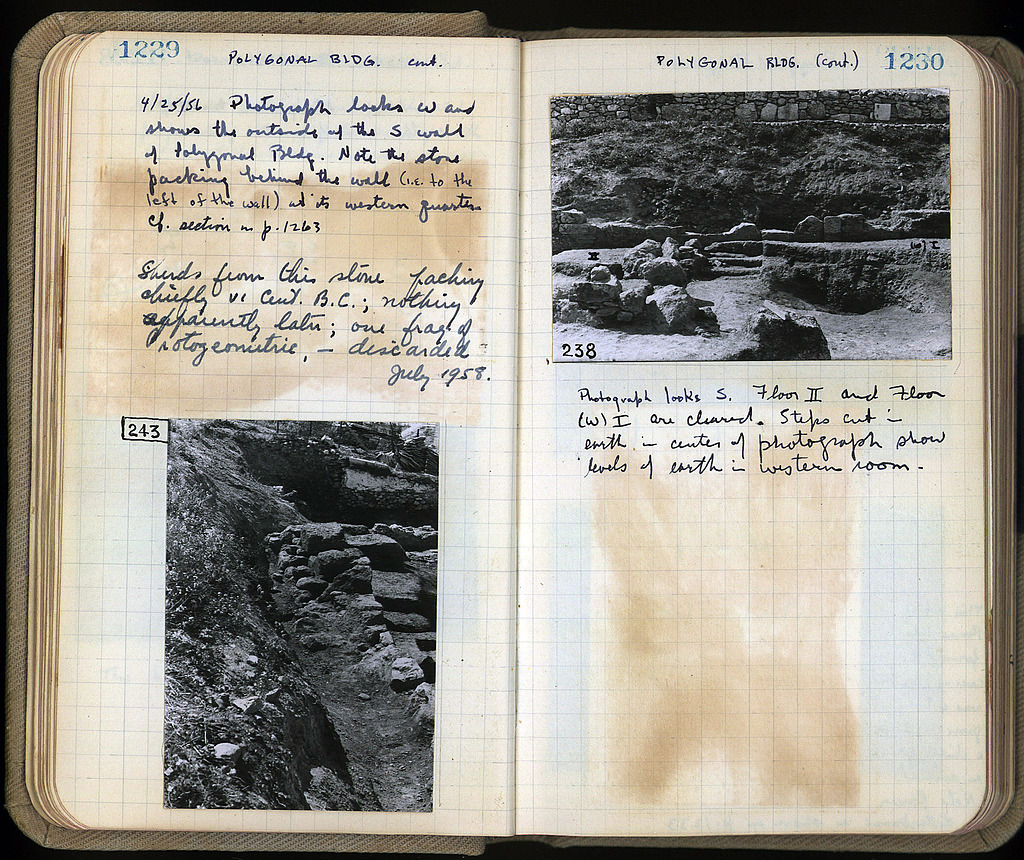 1229
POLYGONAL BLDG. cont.
4/25/56 Photograph looks W and
shows the outside of the S wall
of Polygonal Bldg. Note the stone
packing behind the wall (i.e. to the
left of the wall) at its western quarter
Cf. section on p. 1263
Sherds from this stone packing
chiefly VI Cent. B.C.; nothing
apparently later; one frag of
Protogeometric, — discarded
July 1958.
243
POLYGONAL BLDG. (cont.) 1230
II
(W) I
238
Photograph looks S. Floor II and Floor
(W) I are cleared. Steps cut in
earth in center of photograph show
levels of earth in western room.